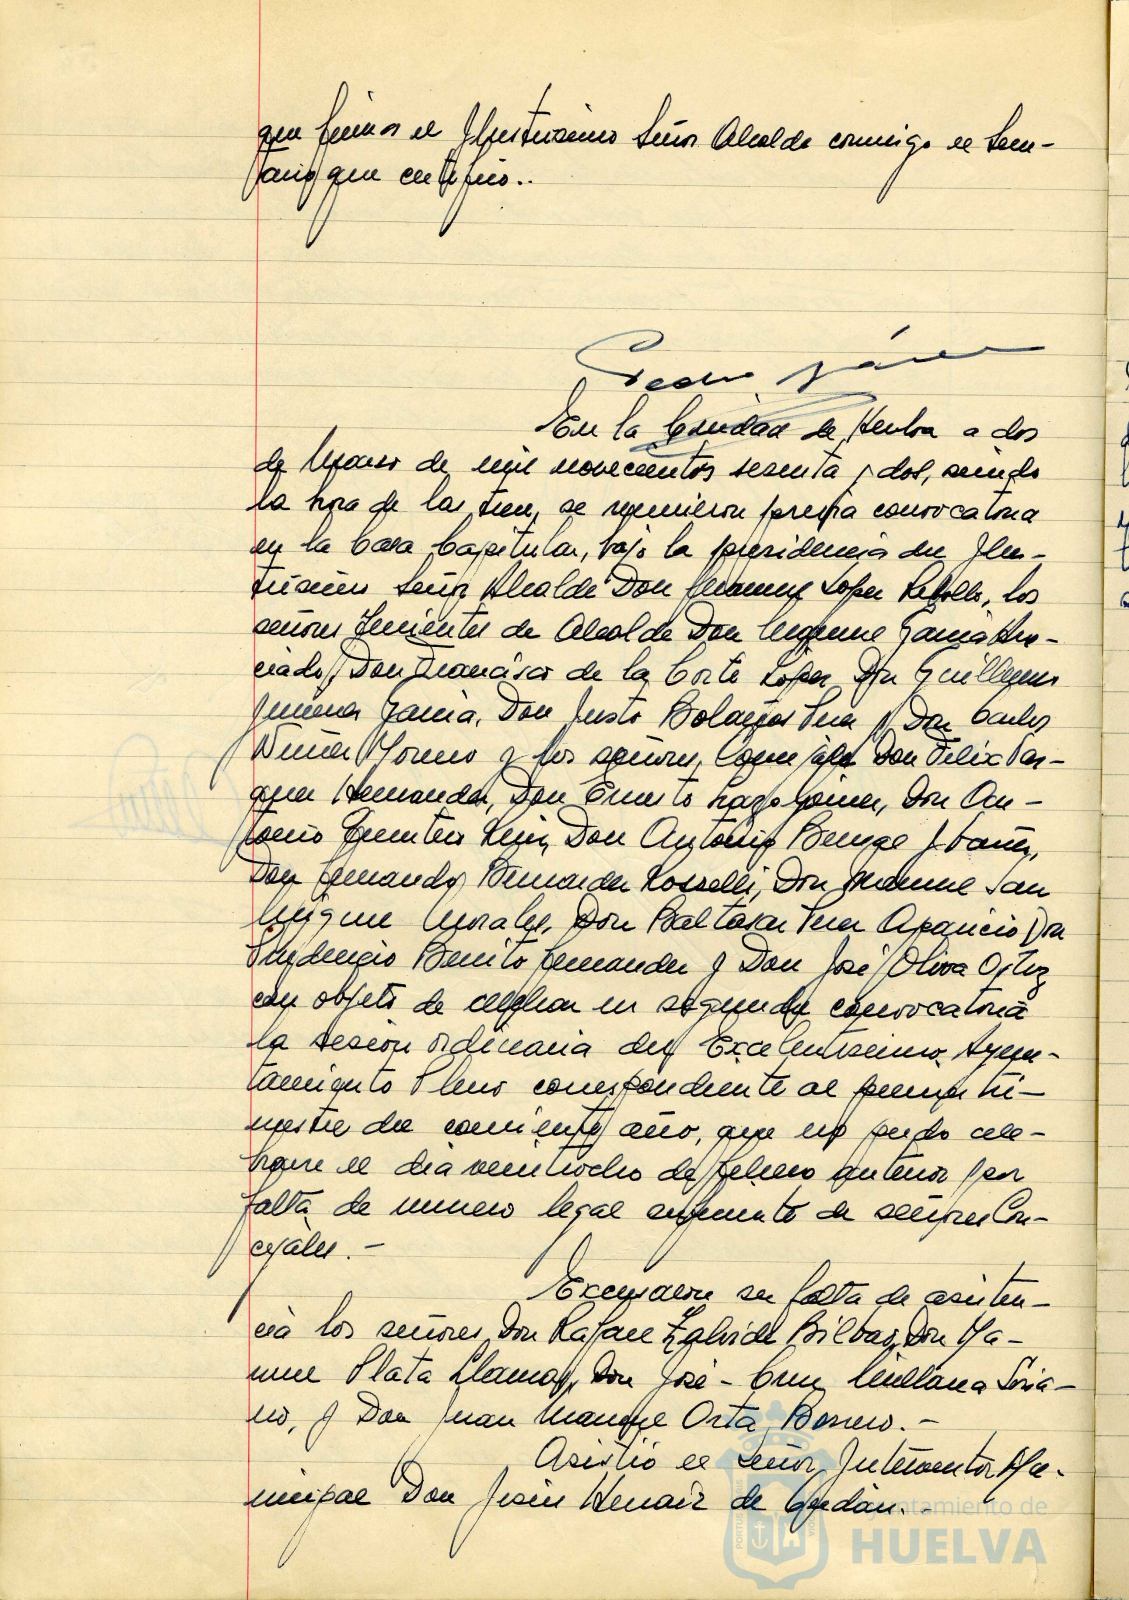 que firma el Ilustrisimo Señor Alcalde conmigo el Secre-
tario que certifico..
Pedro
En la Ciudad de Huelva a dos
de Marzo de mil novecientos sesenta y dos, siendo
la hora de las trece, se reunieron previa convocatoria
en la Casa Capitular, bajo la presidencia del Ilus-
trisimo Señor Alcalde Don Manuel Lopez Rebollo, los
señores Tenientes de Alcalde Don Garcia
Don Francisco de la Corte Lopez, Don Guillermo
Jimenez Garcia, Don Justo Bolaños Don Carlos
Moreno y los señores Concejales Don Felix Vaz-
quez Hernandez, Don Ernesto Lazo Don An-
tonio Fuentes Don Antonio Ibañez,
Don Fernando Bernardez Rosselli, Don Manuel San
Miguel Morales, Don Baltasar Aparicio, Don
Prudencio Benito Fernandez y Don José Oliva Ortiz
con objeto de celebrar en segunda convocatoria
la sesión ordinaria del Excelentisimo Ayun-
tamiento Pleno correspondiente al primer tri-
mestre del corriente año, que no pudo cele-
brarse el dia veintiocho de febrero anterior por
falta de numero legal suficiente de señores Con-
cejales.-
Excusaron su falta de asisten-
cia los señores Don Rafael Zalvide Bilbao, Don Ma-
nuel Plata Llamas, Don José-Cruz Millana Soria-
no, y Don Juan Manuel Orta Borrero.-
Asistió el Señor Interventor Mu-
nicipal Don Jesús Henaiz de Guzmán.-
Ayuntamiento de
HUELVA